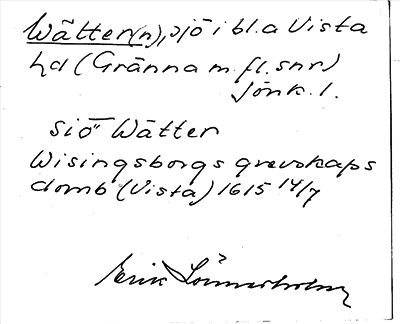 Wätter(n), sjö i bl.a Vista
hd (Gränna m. fl. snr)
Jönk. l.
siö Wätter
Wisingsborgs grevskaps
domb (Vista) 1615 14/7
Erik Lönnerholm